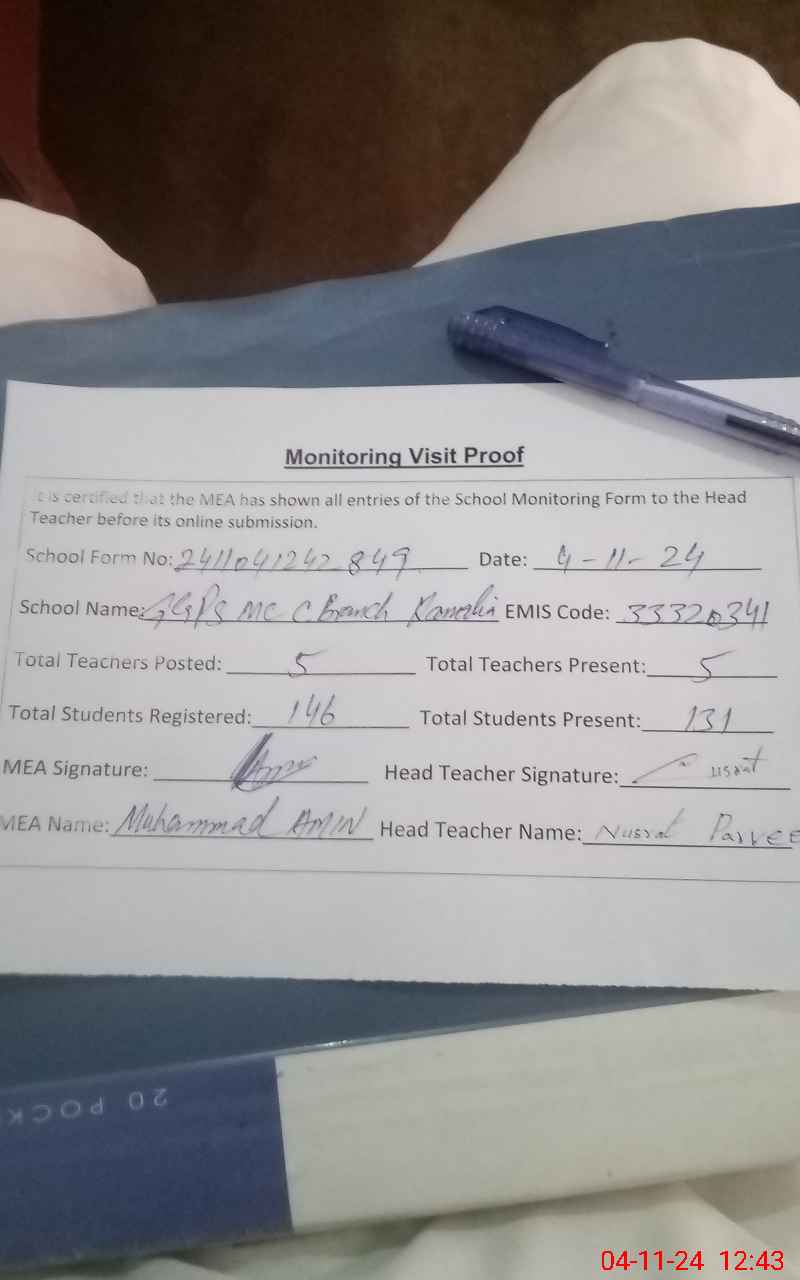 Monitoring Visit Proof
It is certified that the MEA has shown all entries of the School Monitoring Form to the Head
Teacher before its online submission.
School Form No: 2411041242849 Date: 4-11-24
School Name: GGPS MC C Branch Kamalia EMIS Code: 33320341
Total Teachers Posted: 5 Total Teachers Present: 5
Total Students Registered: 146 Total Students Present: 131
MEA Signature: Head Teacher Signature: Nusrat
MEA Name: Muhammad AMIN Head Teacher Name: Nusrat Parvee
20 POCK
04-11-24 12:43